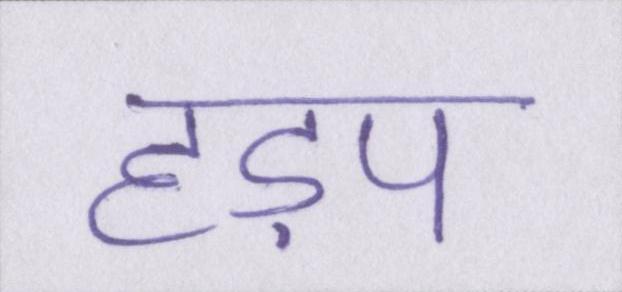 हड़प